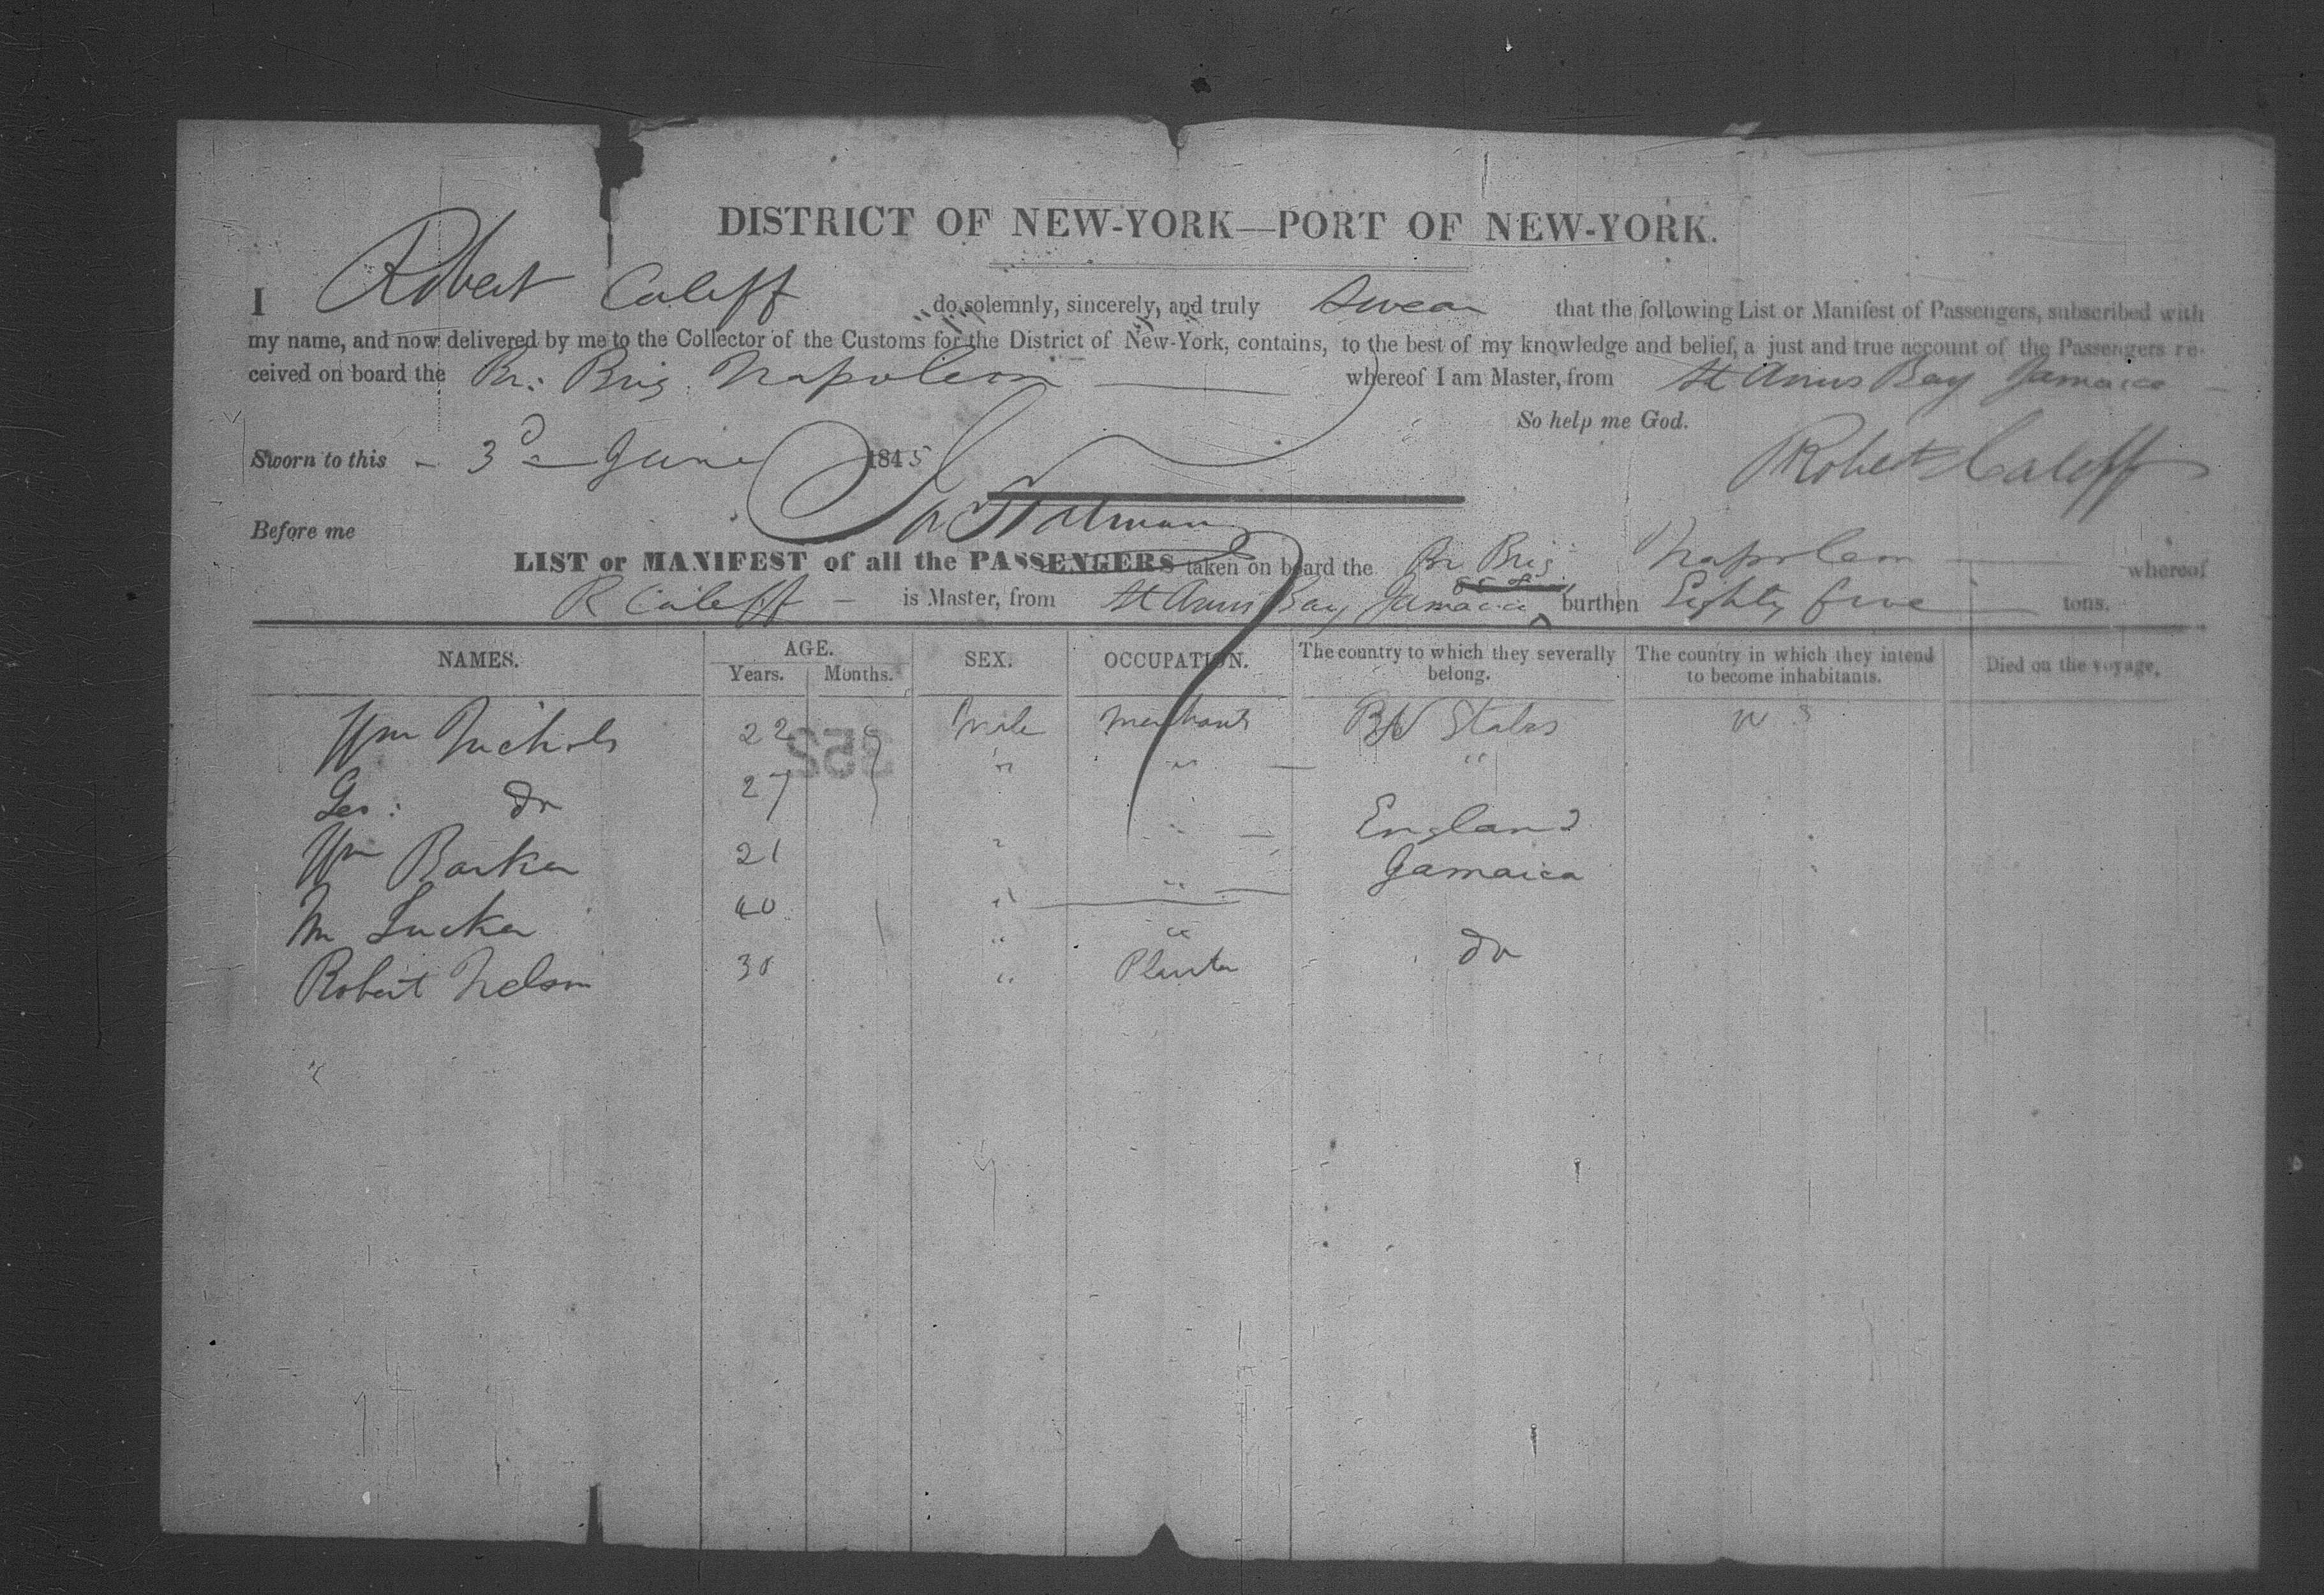 DISTRICT OF NEW-YORK—PORT OF NEW-YORK.
I Robert Caleff do solemnly, sincerely, and truly swear that the following List or Manifest of Passengers, subscribed with
my name, and now delivered by me to the Collector of the Customs for the District of New-York, contains, to the best of my knowledge and belief, a just and true account of the Passengers re-
ceived on board the Br: Brig Napoleon whereof I am Master, from St Anns Bay Jamaica
So help me God.
Sworn to this 3d June 1845 Robert Caleff
Before me
LIST or MANIFEST of all the PASSENGERS taken on board the Br Brig Napoleon whereof
R Caleff is Master, from St Anns Bay Jamaica burthen Eighty five tons.
NAMES. AGE. Years. Months. SEX. OCCUPATION. The country to which they severally belong. The country in which they intend to become inhabitants. Died on the voyage.
Wm Nichols 22 Male Merchant States
Geo: Do 27 " " "
Wm Barker 21 " " England
40 " " Jamaica
Robert Nelson 30 " Planter Do